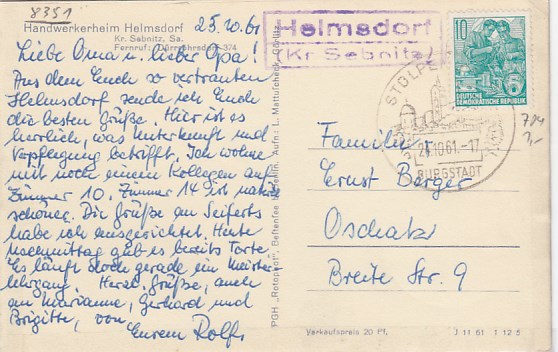 8351
25.10.61
Handwerkerheim Helmsdorf
Kr. Sebnitz, Sa.
Fernruf: Dürrröhrsdorf 374
Liebe Oma u. lieber Opa!
Aus dem Euch so vertrauten
Helmsdorf sende ich Euch
die besten Grüße. Hier ist es
herrlich, was Unterkunft und
Verpflegung betrifft. Ich wohne
mit noch einem Kollegen auf
Zimmer 10. Zimmer 14 ist
schöner. Die Grüße an Seiferts
habe ich ausgerichtet. Heute
nachmittag gab es bereits Torte.
Es läuft doch gerade ein Meister-
lehrgang. Herzl. Grüße, auch
an Marianne, Gerhard und
Brigitte, von
Eurem Rolf.
PGH "Rotophot", Bestensee b. Berlin. Aufn.: L. Mattufcheck, Görlitz
Helmsdorf
(Kr Sebnitz)
10
DEUTSCHE
DEMOKRATISCHE REPUBLIK
STOLPEN
.10.61.-17
BURGSTADT
Familie
Ernst Berger
Oschatz
Breite Str. 9
Verkaufspreis 20 Pf.
J 11 61 I 12 5